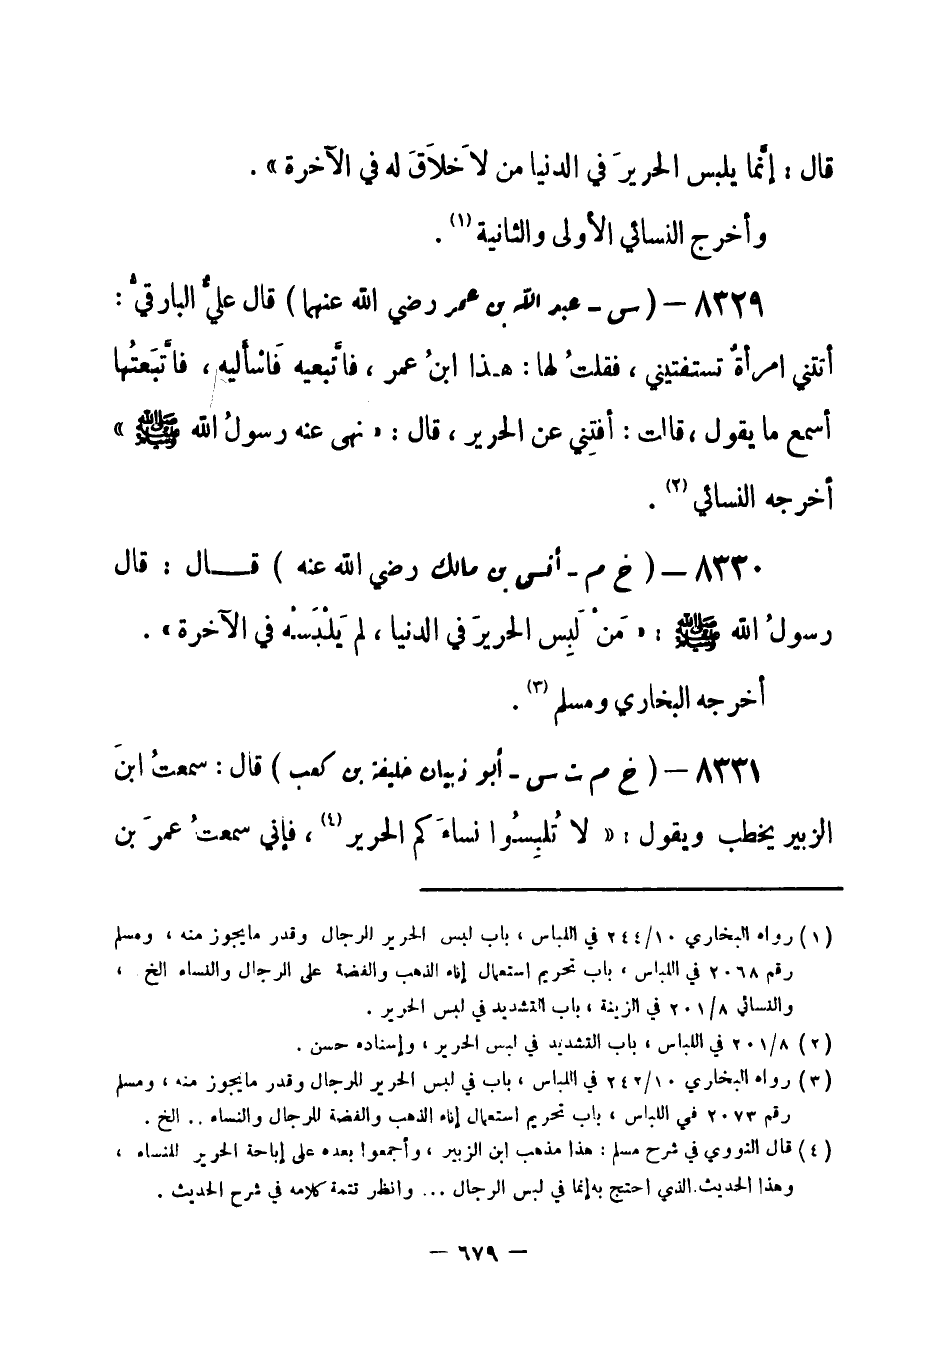 قال : إنَّما يلبس الحريرَ في الدنيا من لا خَلَاقَ له في الآخرة » .
وأخرج النسائي الأولى والثانية (١) .
٨٣٢٩ – ( س - عبد الله بن عمر رضي الله عنهما ) قال عليٌّ البارقيُّ :
أتتني امرأةٌ تستفتيني ، فقلتُ لها : هـذا ابنُ عمر ، فاتَّبعيه فَاسْأليه ، فاتَّبَعتُها
أسمع ما يقول ، قالت : أفتِني عن الحرير ، قال : « نهى عنه رسولُ الله ﷺ »
أخرجه النسائي (٢) .
٨٣٣٠ – ( خ م - أنس بن مالك رضي الله عنه ) قــال : قال
رسولُ الله ﷺ : « مَنْ لَبِس الحريرَ في الدنيا ، لم يَلْبَسْه في الآخرة » .
أخرجه البخاري ومسلم (٣) .
٨٣٣١ – ( خ م ت س - أبو ذبيان خليفة بن كعب ) قال : سمعتُ ابنَ
الزبير يخطب ويقول : « لا تُلبِسُوا نساءَكم الحرير (٤) ، فإني سمعتُ عمرَ بن
(١) رواه البخاري ٢٤٤/١٠ في اللباس ، باب لبس الحرير للرجال وقدر مايجوز منه ، ومسلم
رقم ٢٠٦٨ في اللباس ، باب تحريم استعمال إناء الذهب والفضة على الرجال والنساء الخ ،
والنسائي ٢٠١/٨ في الزينة ، باب التشديد في لبس الحرير .
(٢) ٢٠١/٨ في اللباس ، باب التشديد في لبس الحرير ، وإسناده حسن .
(٣) رواه البخاري ٢٤٢/١٠ في اللباس ، باب في لبس الحرير للرجال وقدر مايجوز منه ، ومسلم
رقم ٢٠٧٣ في اللباس ، باب تحريم استعمال إناء الذهب والفضة للرجال والنساء .. الخ .
(٤) قال النووي في شرح مسلم : هذا مذهب ابن الزبير ، وأجمعوا بعده على إباحة الحرير للنساء ،
وهذا الحديث الذي احتج به إنما في لبس الرجال ... وانظر تتمة كلامه في شرح الحديث .
– ٦٧٩ –